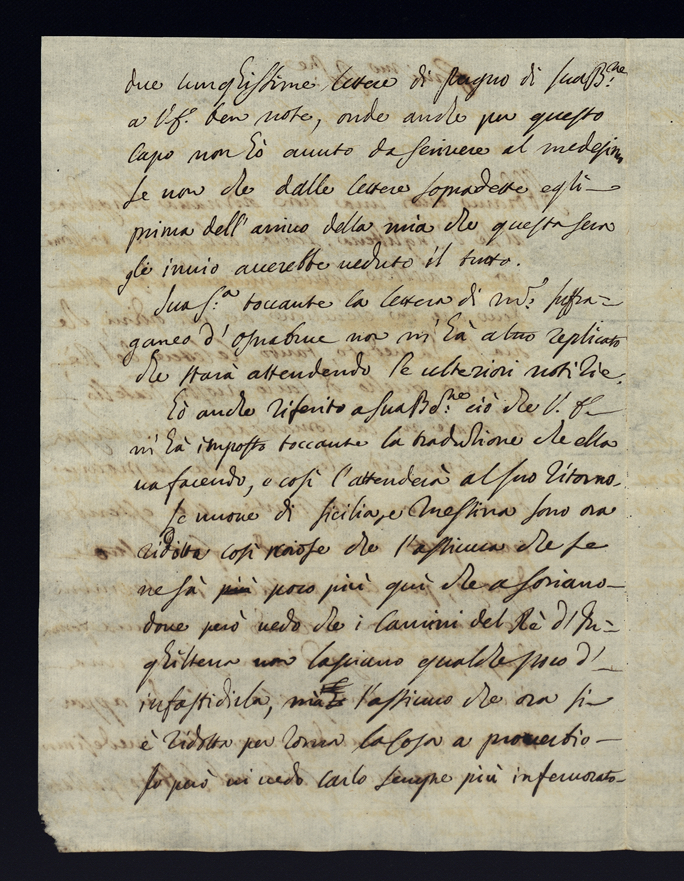 due lunghissime lettere di pugno di sua B.ne
a V.E. ben note, onde anche per questo
capo non hò auuto da scriuere al medesimo
se non che dalle lettere sopradette egli
prima dell' arriuo della mia che questa sera
gli inuio auerebbe ueduto il tutto.
Sua S.a toccante la lettera di m.r suffra=
ganeo d' Osnabruc non m' hà altro replicato
che starà attendendo le ulteriori notitie.
Hò anche riferito a sua B.ne ciò che V.E.
m' hà imposto toccante la tradutione che ella
ua facendo, e così l' attenderà al suo ritorno.
Le nuoue di Sicilia, e Messina sono ora
ridotte così che l' assicuro che se
ne sà più poco più quì che a Soriano
doue però uedo che i Camini del Rè d' In=
ghilterra non lasciano qualche poco d'
infastidirla, mà l' assicuro che ora si
è ridotta per Roma la cosa a prouerbio
Io però ui uedo Carlo sempre più inferuorato